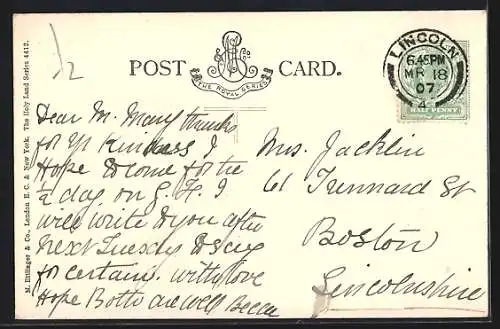 ½
POST CARD.
THE ROYAL SERIES
LINCOLN
6.45PM
MR 18
07
4
HALF PENNY
M. Ettlinger & Co., London E.C. & New York. The Holy Land Series 4412.
Dear M. Many thanks
for yr Kindness I
Hope to come for the
½ day on G. F. I
will write to you after
Next Tuesday to say
for certain. with love
Hope Both are well
Mrs. Jacklin
61 Trunnard St
Boston
Lincolnshire